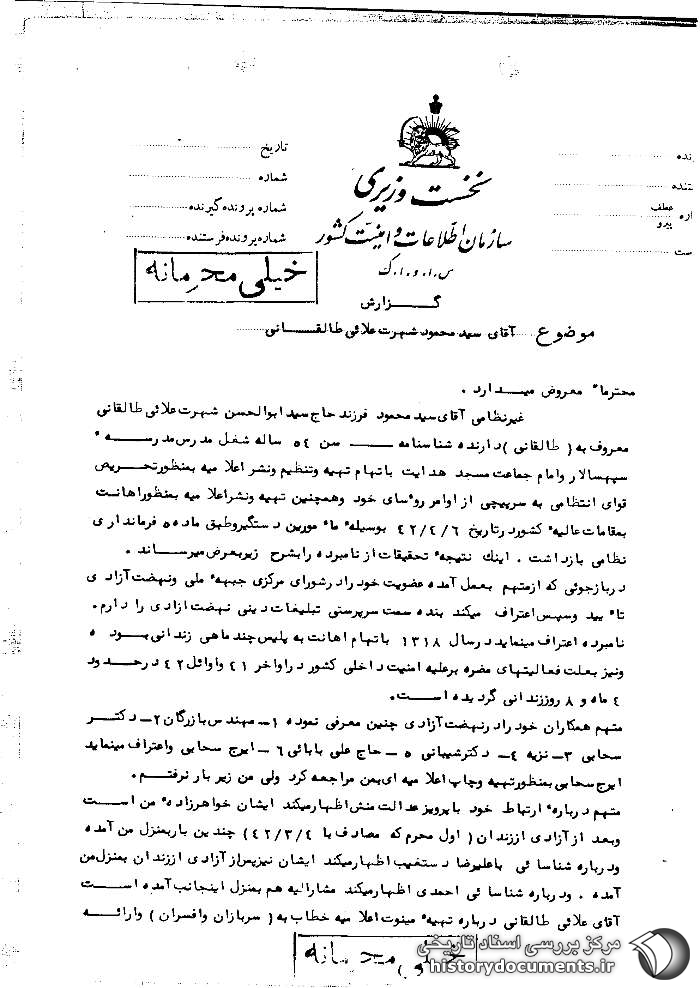 تاریخ
شماره
شماره پرونده گیرنده
شماره پرونده فرستنده
عطف
پیرو
نخست وزیری
سازمان اطلاعات و امنیت کشور
س.ا.و.ا.ک
خیلی محرمانه
گزارش
موضوع آقای سید محمود شهرت علائی طالقانی
محترما" معروض میدارد .
غیرنظامی آقای سید محمود فرزند حاج سید ابوالحسن شهرت علائی طالقانی
معروف به ( طالقانی ) دارنده شناسنامه ــ سن ٥٤ ساله شغل مدرس مدرسه
سپهسالار وامام جماعت مسجد هدایت باتهام تهیه وتنظیم ونشر اعلامیه بمنظور تحریص
قوای انتظامی به سرپیچی از اوامر روسای خود وهمچنین تهیه ونشر اعلامیه بمنظور اهانت
بمقامات عالیه کشور در تاریخ ٤٢/٤/٦ بوسیله مامورین دستگیر وطبق ماده ٥ فرمانداری
نظامی بازداشت . اینك نتیجه تحقیقات از نامبرده را بشرح زیر بعرض میرساند .
در بازجوئی که از متهم بعمل آمده عضویت خود را در شورای مرکزی جبهه ملی ونهضت آزادی
تایید وسپس اعتراف میکند بنده سمت سرپرستی تبلیغات دینی نهضت ازادی را دارم.
نامبرده اعتراف مینماید در سال ١٣١٨ باتهام اهانت به پلیس چند ماهی زندانی بوده
ونیز بعلت فعالیتهای مضره بر علیه امنیت داخلی کشور در اواخر ٤١ و اوائل ٤٢ در حدود
٤ ماه و ٨ روز زندانی گردیده است.
متهم همکاران خود را در نهضت آزادی چنین معرفی نموده ١- مهندس بازرگان ٢- دکتر
سحابی ٣- نزیه ٤- دکتر شیبانی ٥ - حاج علی بابائی ٦ - ایرج سحابی واعتراف مینماید
ایرج سحابی بمنظور تهیه وچاپ اعلامیه ای بمن مراجعه کرد ولی من زیر بار نرفتم .
متهم درباره ارتباط خود با پرویز عدالت منش اظهار میکند ایشان خواهرزاده من است
وبعد از آزادی از زندان ( اول محرم که مصادف با ٤٢/٣/٤ ) چندین بار بمنزل من آمده
ودرباره شناسائی با علیرضا دستغیب اظهار میکند ایشان نیز پس از آزادی از زندان بمنزل من
آمده . ودرباره شناسائی احمدی اظهار میکند مشارالیه هم بمنزل اینجانب آمده است
آقای علائی طالقانی درباره تهیه مینوت اعلامیه خطاب به ( سربازان وافسران ) وارائه
خیلی محرمانه
مرکز بررسی اسناد تاریخی
historydocuments.ir